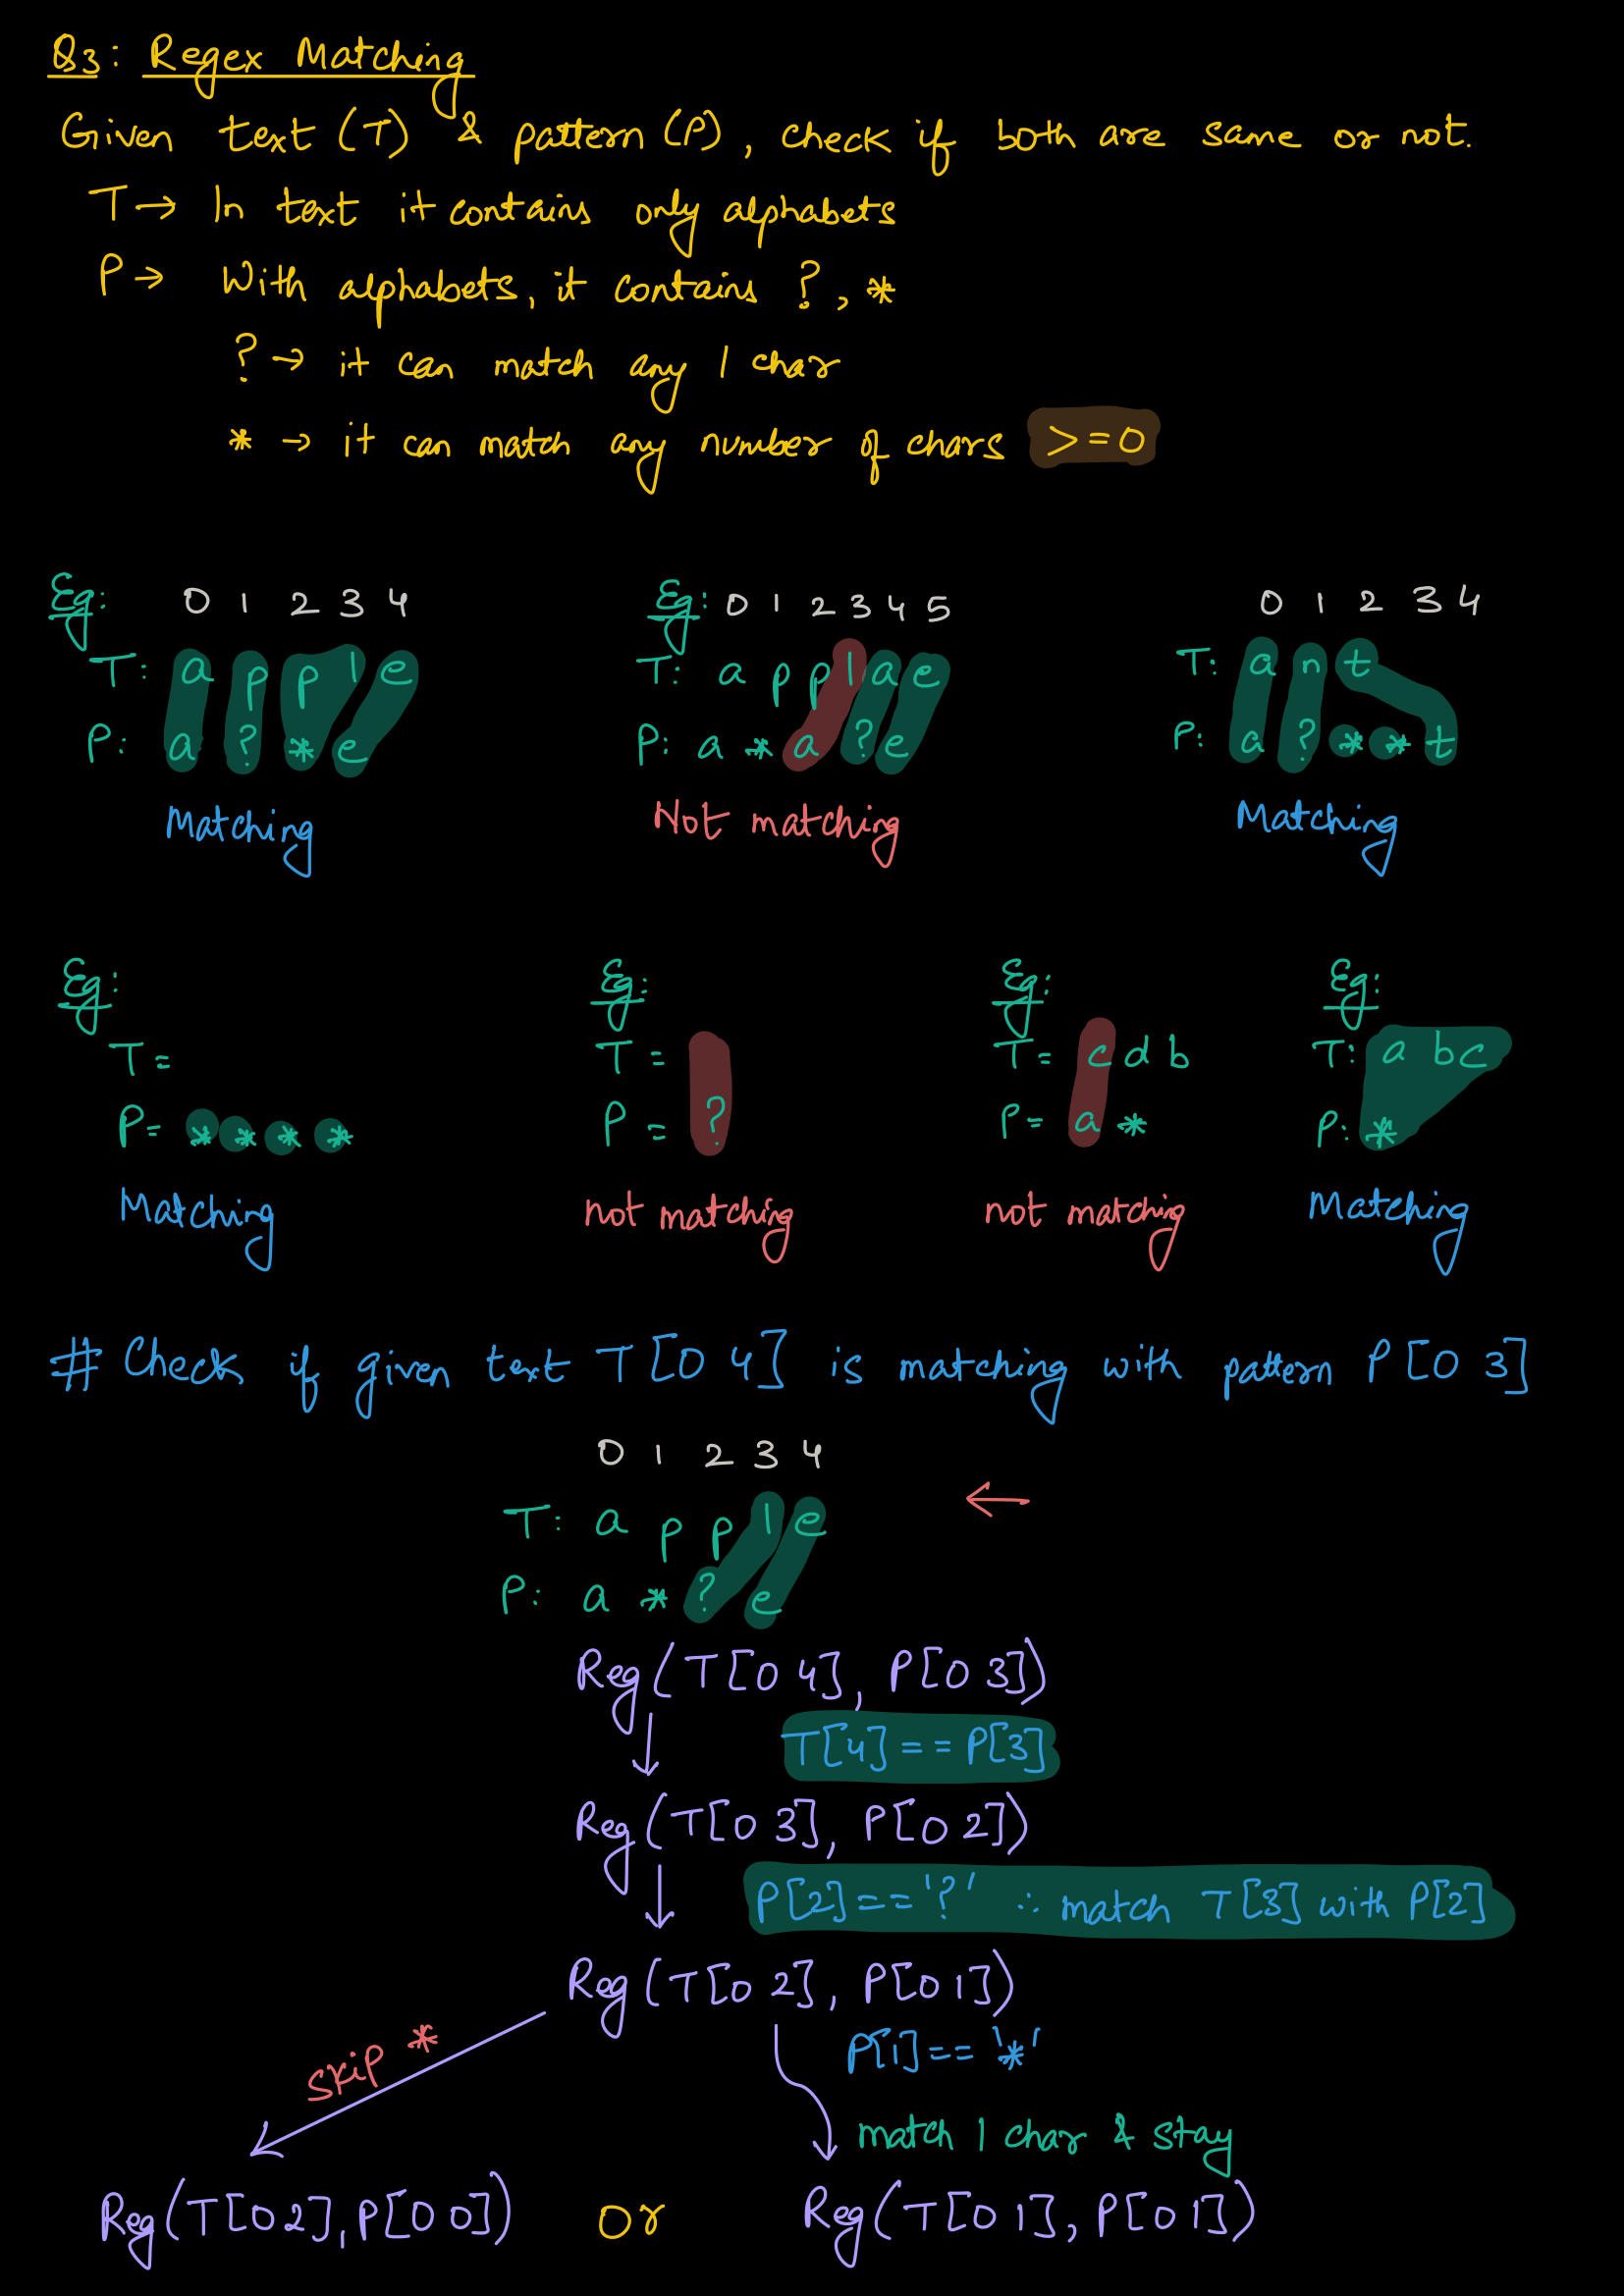 Q3: Regex Matching
Given text (T) & pattern (P), check if both are same or not.
T → In text it contains only alphabets
P → With alphabets, it contains ?, *
? → it can match any 1 char
* → it can match any number of chars >=0
Eg: 0 1 2 3 4
T: a p p l e
P: a ? * e
Matching
Eg: 0 1 2 3 4 5
T: a p p l a e
P: a * a ? e
Not matching
0 1 2 3 4
T: a n t
P: a ? * * t
Matching
Eg:
T =
P = * * * *
Matching
Eg:
T =
P = ?
not matching
Eg:
T = c d b
P = a *
not matching
Eg:
T: a b c
P: *
Matching
# Check if given text T[0 4] is matching with pattern P[0 3]
0 1 2 3 4
T: a p p l e ←
P: a * ? e
Reg(T[0 4], P[0 3])
T[4] == P[3]
Reg(T[0 3], P[0 2])
P[2] == '?' ∴ match T[3] with P[2]
Reg(T[0 2], P[0 1])
skip *
P[1] == '*'
match 1 char & stay
Reg(T[0 2], P[0 0]) or Reg(T[0 1], P[0 1])